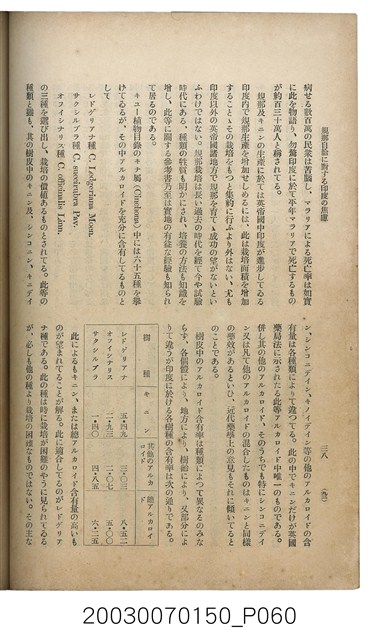 規那自給に對する印度の焦慮
病せる數百萬の民衆は苦惱し、マラリアによる死亡率は如實
に此を物語り、勿論印度に於て平年マラリアで死亡するもの
が約百三十萬人と稱されてる。
規那及キニンの生產に於ては英帝國中印度が進步してゐる
印度內で規那生產を增加せしめるには、此栽培面積を增加
することゝその栽培をもつと集約に行ふより外はない。尤も
印度以外の英帝國諸地方で規那を育てゝ成功の望がないとい
ふわけではない。規那栽培は長い過去の時代を經て今や試驗
時代にある。種類の性質も明かにされ、培養の方法も知識を
增し、此等に關する參考書乃至は實地の有益な經驗も知られ
て居るのである。
キユー植物目錄のキナ屬 (Cinchona) 中には六十五種を擧
げてゐるが、その中アルカロイドを充分に含有してるものと
して
レドゲリアナ種 C. Ledgeriana Moen.
サクシルブラ種 C. succirubra Pav.
オフイシナリス種 C. officinalis Linn.
の三種を選び出し、栽培の價値あるものとされてる。此等の
種類と雖も、其の樹皮中のキニン及、シンコニン、キニデイ
三八
ン、シンコニデイン、キノイデイン等の他のアルカロイドの含
有量は各種類によりて違つてる。此の中でキニンだけが英國
藥局法に示されたる此等アルカロイド中唯一のものである。
併し其の他のアルカロイド、そのうちでも特にシンコニデイ
ン又は凡て他のアルカロイドの混合したものはキニンと同樣
の藥效があるといひ、近代藥學上の意見もそれに傾いてると
のことである。
樹皮中のアルカロイド含有率は種類によつて異なるのみな
らず、各個體により、地方により、樹齡により、又部分によ
りて違うが印度に於ける各樹種の含有率は次の通りである。
樹種 キニン 其他のアルカロイド 總アルカロイド
レドゲリアナ 五・四九 三・〇三 八・五二
オフイシナリス 二・九三 二・〇七 五・〇〇
サクシルブラ 一・四〇 四・八五 六・二五
此によるもキニン、または總アルカロイド含有量の高いも
のが望まれてることが解る。此に適合してるのがレドゲリア
ナ種である。此の種は時に栽培が困難のやうに見られてゐる
が、必しも他の種より栽培の困難なものではない。その主な
20030070150_P060